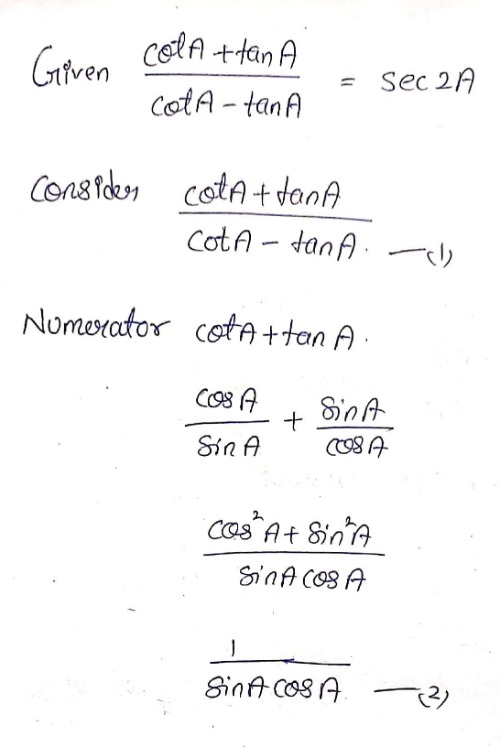 Given (cotA + tanA)/(cotA - tanA) = sec 2A
Consider (cotA + tanA)/(cotA - tanA). —(1)
Numerator cotA + tan A.
cos A/sin A + sin A/cos A
(cos²A + sin²A)/(sinA cos A)
1/(sinA cos A) —(2)